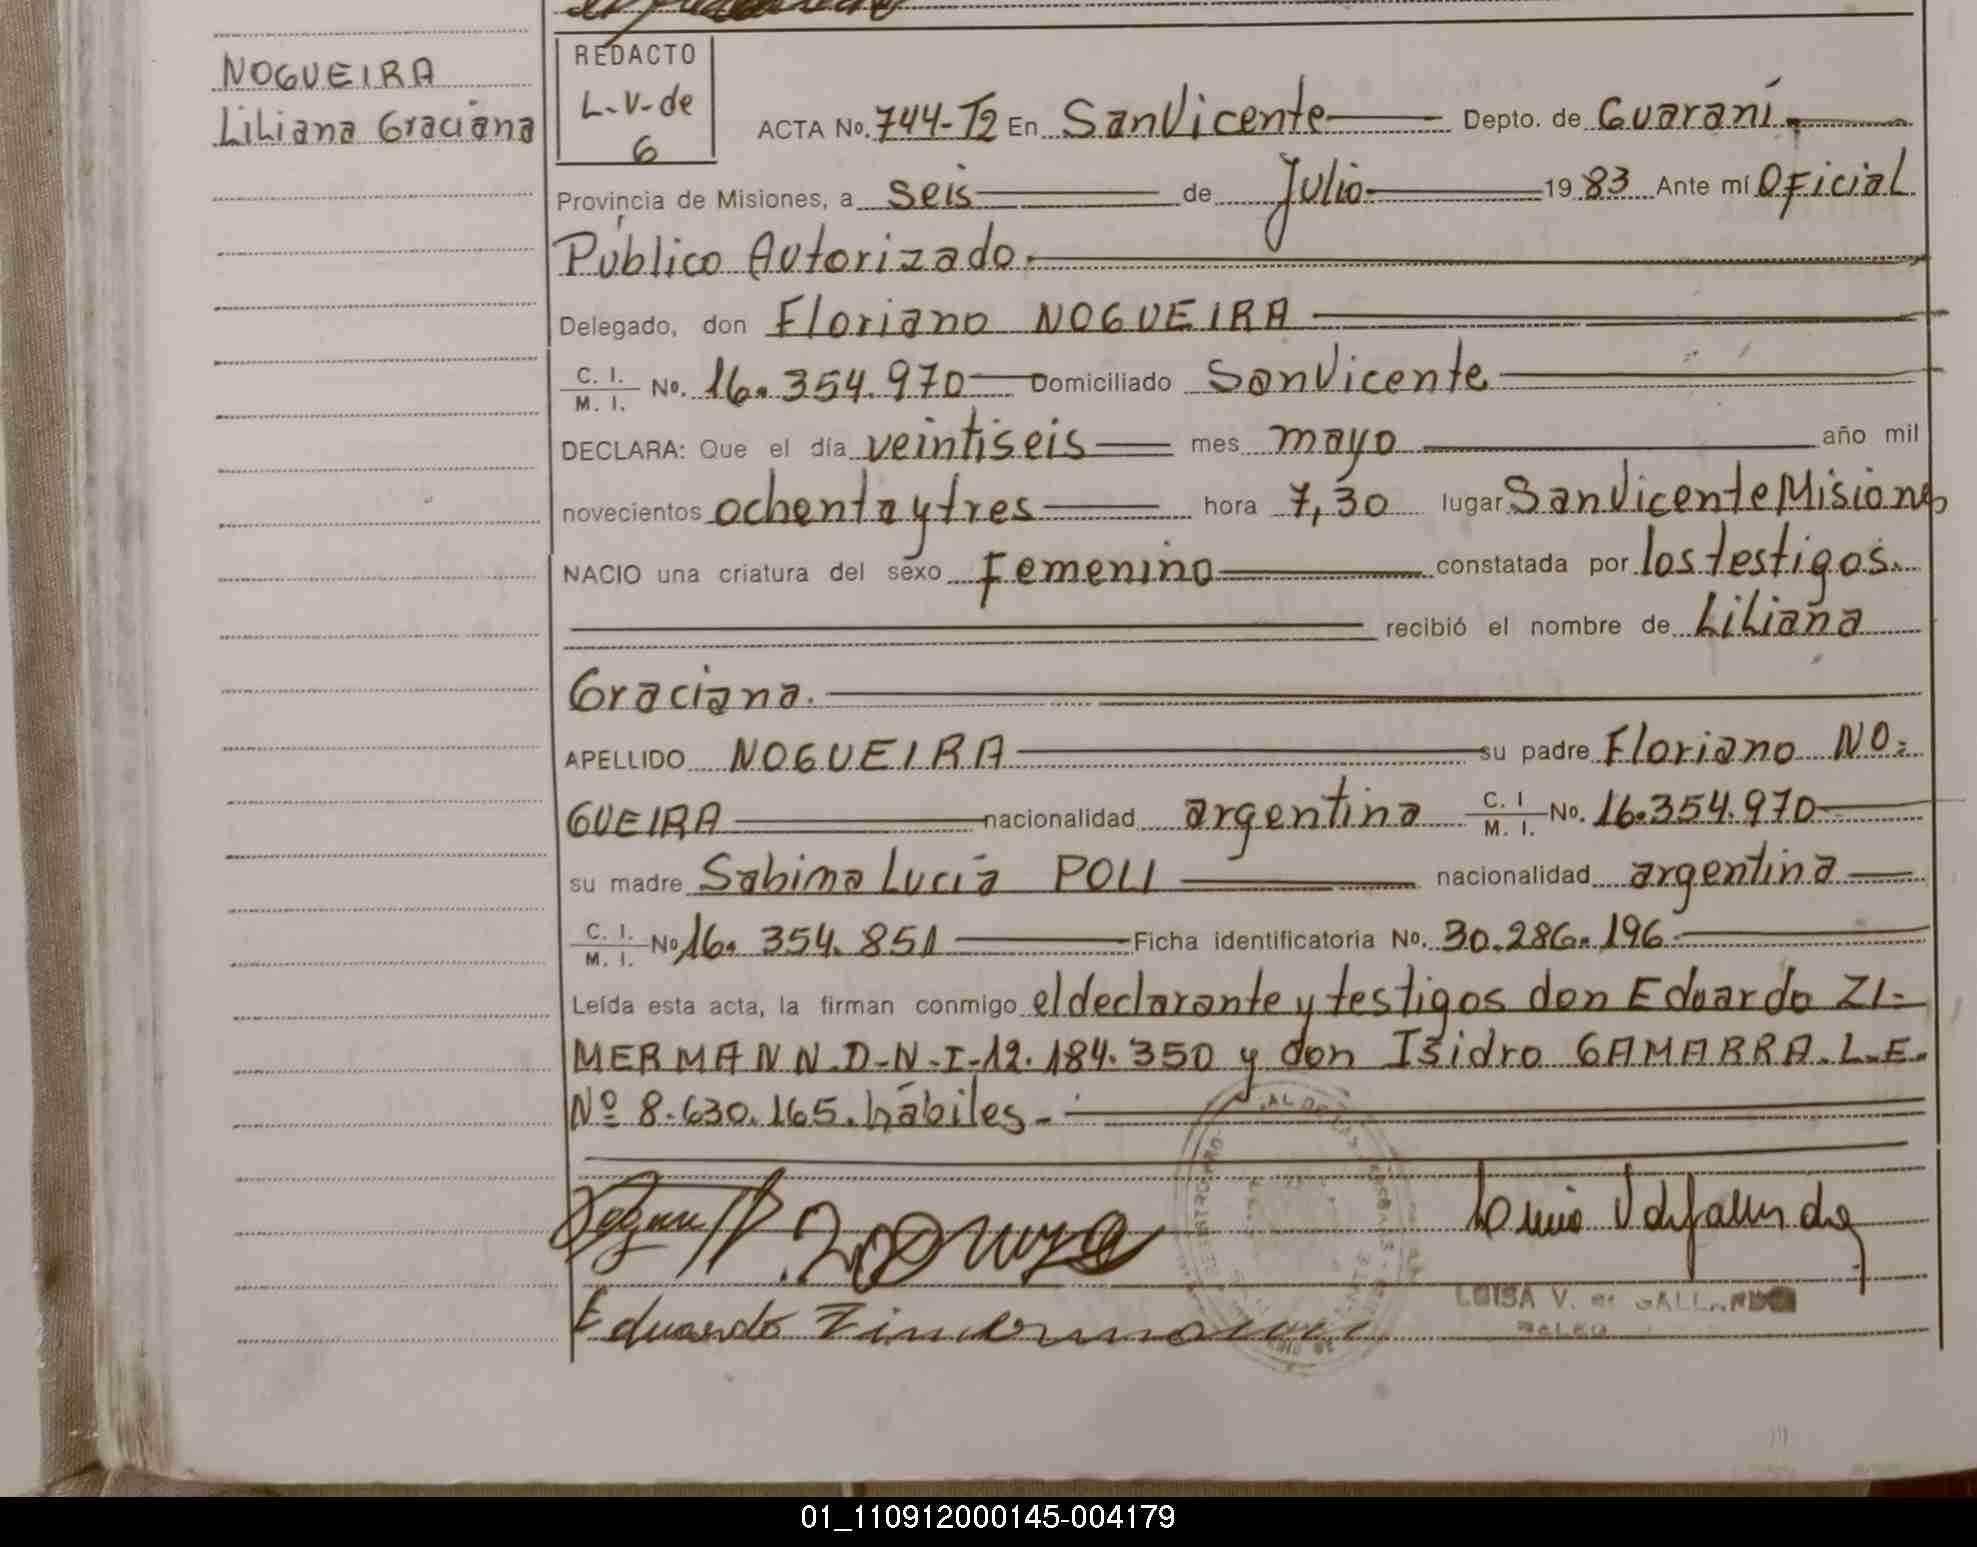 NOGUEIRA
Liliana Graciana
REDACTO
L-V-de
6
ACTA No. 744-T2 En San Vicente Depto. de Guaraní.
Provincia de Misiones, a seis de Julio 19 83 Ante mí Oficial
Público Autorizado.
Delegado, don Floriano NOGUEIRA
C. I. M. I. No. 16.354.970 Domiciliado San Vicente
DECLARA: Que el día veintiseis mes mayo año mil
novecientos ochenta y tres hora 7,30 lugar San Vicente Misiones
NACIO una criatura del sexo Femenino constatada por los testigos.
recibió el nombre de Liliana
Graciana.
APELLIDO NOGUEIRA su padre Floriano NO-
GUEIRA nacionalidad argentina C. I M. I. No. 16.354.970
su madre Sabima Lucía POLI nacionalidad argentina
C. I. M. I. No 16. 354. 851 Ficha identificatoria No. 30.286.196
Leída esta acta, la firman conmigo el declarante y testigos don Eduardo ZI-
MERMANN.D-N-I-12.184.350 y don Isidro GAMARRA.L.E.
Nº 8.630.165. hábiles.-
Eduardo Zimermann
LUISA V. de GALLARDO
01_110912000145-004179